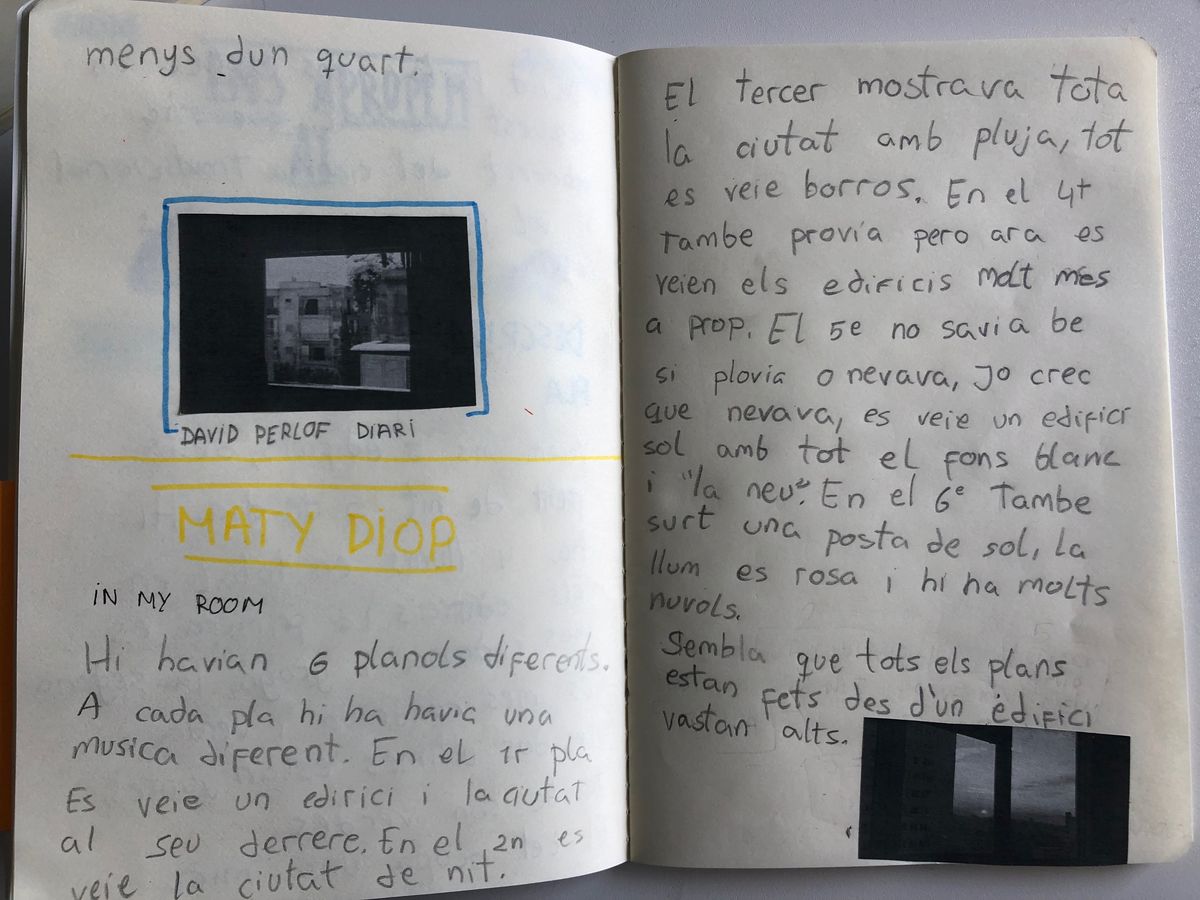 menys dun quart.
DAVID PERLOF DIARI
MATY DIOP
IN MY ROOM
Hi havian 6 planols diferents.
A cada pla hi ha havia una
musica diferent. En el 1r pla
Es veie un edirici i la ciutat
al seu derrere. En el 2n es
veie la ciutat de nit.
El tercer mostrava tota
la ciutat amb pluja, tot
es veie borros. En el 4t
també provía pero ara es
veien els edificis molt més
a prop. El 5e no savia be
si plovia o nevava, Jo crec
que nevava, es veie un edifici
sol amb tot el fons blanc
i "la neu". En el 6e També
surt una posta de sol, la
llum es rosa i hi ha molts
nuvols.
Sembla que tots els plans
estan fets des d'un edifici
vastan alts.